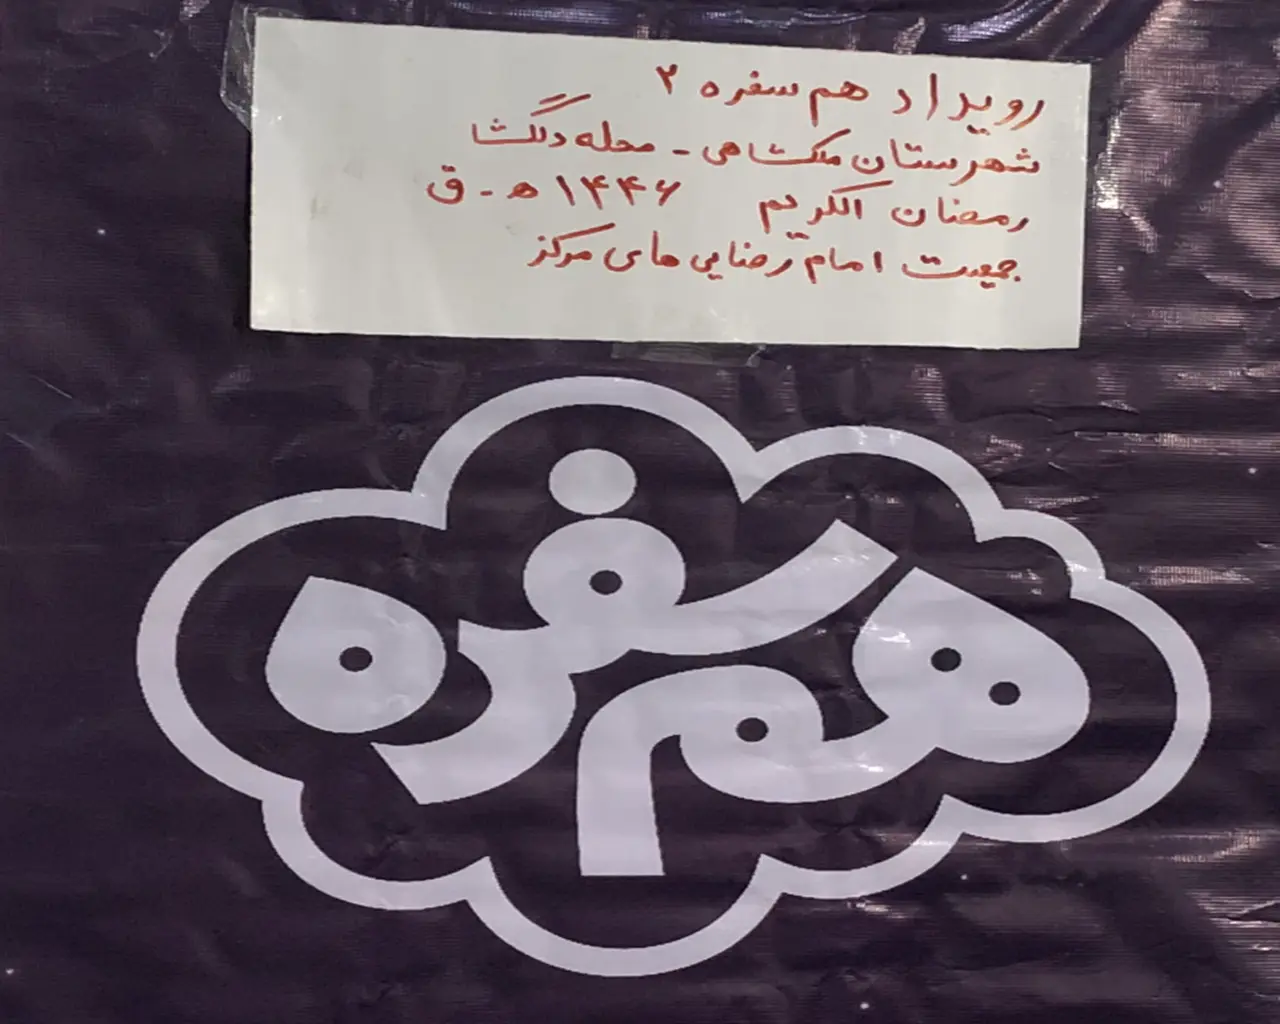 رویداد هم سفره ۲
شهرستان ملکشاهی - محله دلگشا
رمضان الکریم ۱۴۴۶ ه - ق
جمعیت امام رضایی های مرکز
هم سفره